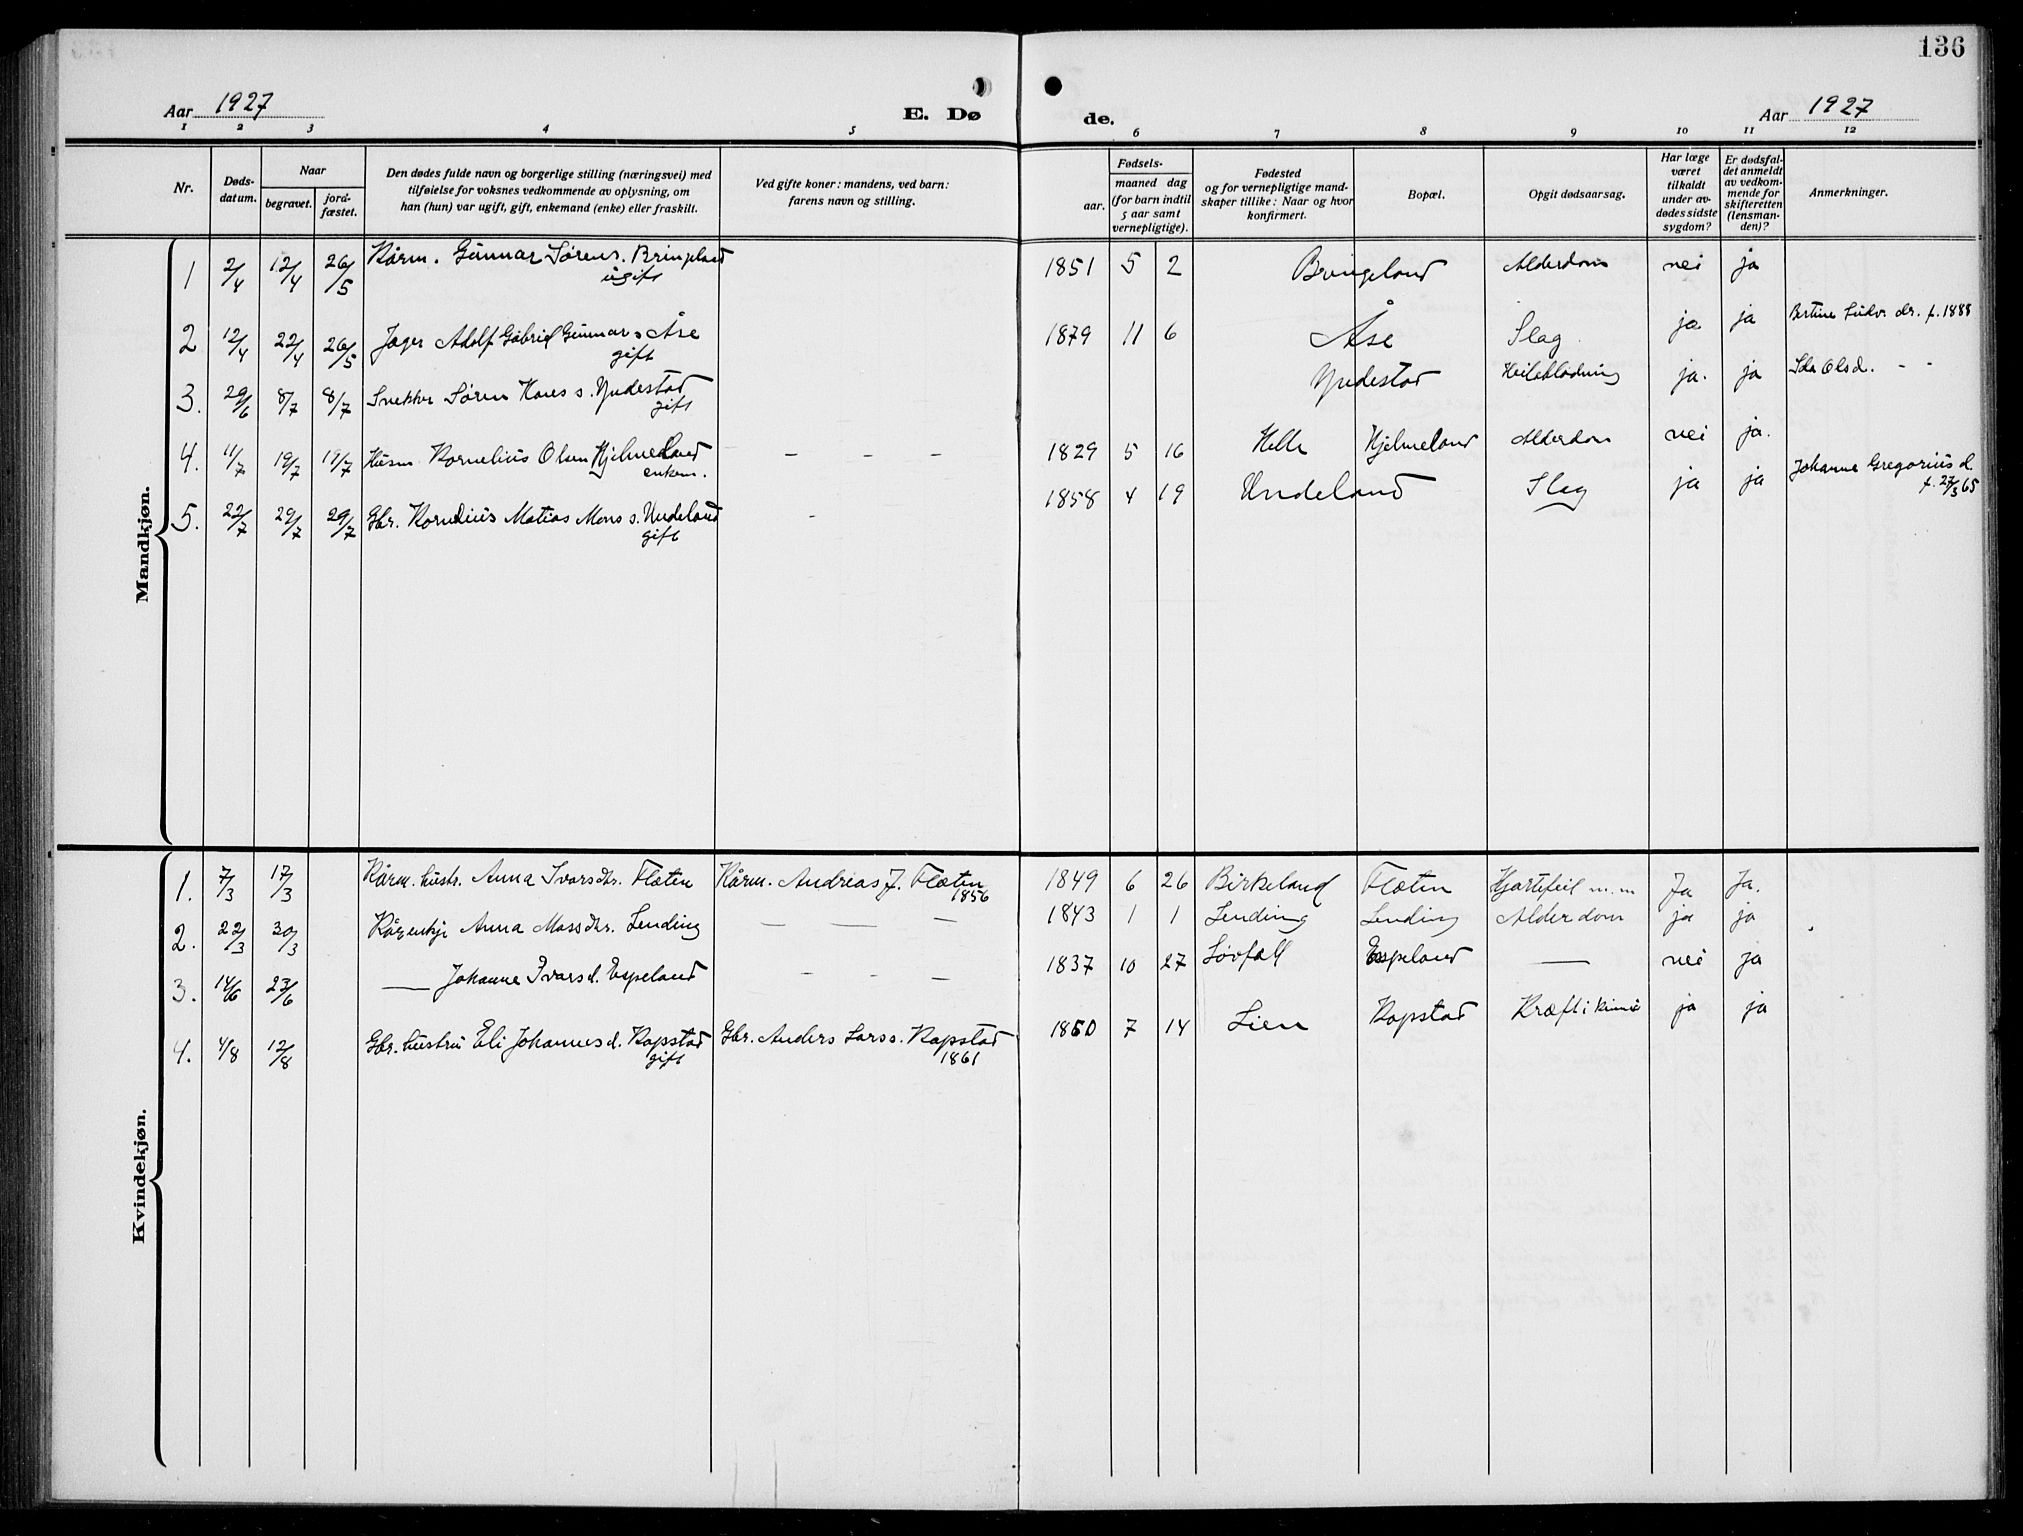 136
Aar 1927
E. Dø
de.
Aar 1927
1 2 3 4 5 6 7 8 9 10 11 12
Nr.
Døds-
datum.
Naar
begravet.
jord-
fæstet.
Den dødes fulde navn og borgerlige stilling (næringsvei) med
tilføielse for voksnes vedkommende av oplysning, om
han (hun) var ugift, gift, enkemand (enke) eller fraskilt.
Ved gifte koner: mandens, ved barn:
farens navn og stilling.
Fødsels-
aar.
maaned dag
(for barn indtil
5 aar samt
vernepligtige).
Fødested
og for vernepligtige mand-
skaper tillike: Naar og hvor
konfirmert.
Bopæl.
Opgit dødsaarsag.
Har læge
været
tilkaldt
under av-
dødes sidste
sygdom?
Er dødsfal-
det anmeldt
av vedkom-
mende for
skifteretten
(lensman-
den)?
Anmerkninger.
Mandkjøn.
1 2/4 12/4 26/5 Kårm. Gunnar Sørens. Bringeland 1851 5 2 Bringeland Alderdom nei ja
ugift
2 12/4 22/4 26/5 Jæger Adolf Gabriel Gunnar s. Åse 1879 11 6 Åse Slag ja ja Bertine Ludv. dr. f. 1888
gift
3. 29/6 8/7 8/7 Snekker Søren Hans s. Yndestad Yndestad ja. ja Ida Olsd. - -
gift
4. 11/7 19/7 19/7 Husm. Kornelius Olsen Hjelmeland - - - 1829 5 16 Helle Hjelmeland Alderdom nei ja.
enkem.
5. 22/7 29/7 29/7 Gbr. Kornelius Matias Mons s. Undeland - 1858 4 19 Undeland Slag ja ja Johanne Gregorius d.
gift
f. 27/3 65
Kvindekjøn.
1. 7/3 17/3 Kårm. hustr. Anna Ivarsdtr. Flæten Kårm. Andreas J. Flæten 1849 6 26 Birkeland Flæten Hjartefeil m.m Ja Ja.
1856
2. 22/3 30/3 Kårenkje Anna Massdtr. Lending — — — 1843 1 1 Lending Lending Alderdom ja ja
3. 14/6 23/6 — Johanne Ivars d. Espeland - - - 1837 10 27 Løvfall Espeland — nei ja
4. 4/8 12/8 Gbr. hustru Eli Johannes d. Kopstad Gbr. Anders Lars s. Kopstad 1860 7 14 Lien Kopstad Kræft i ja ja
gift 1861